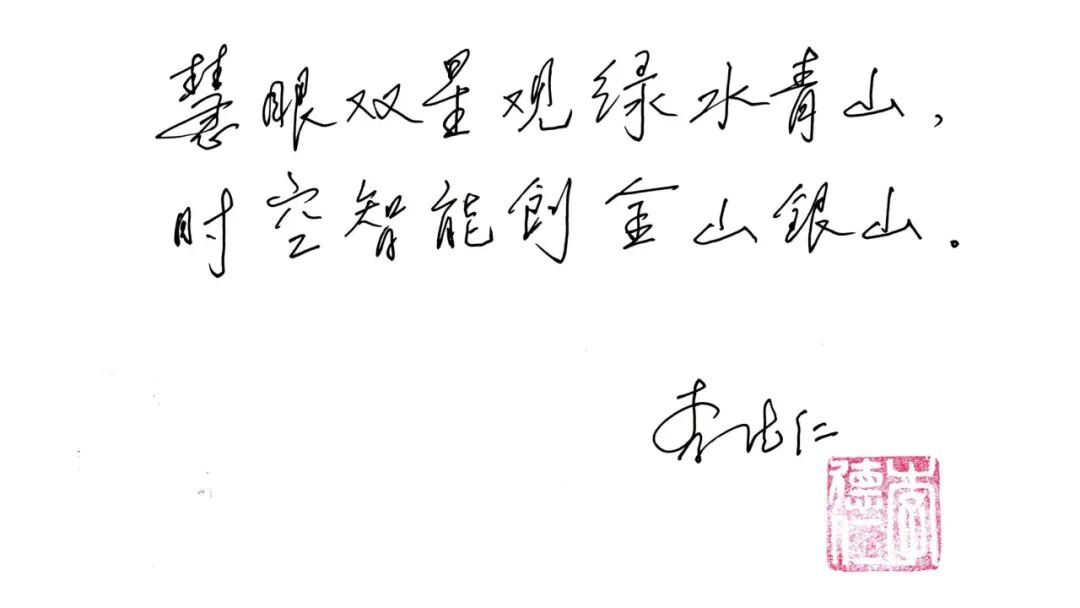 慧眼双星观绿水青山，
时空智能创金山銀山。
李德仁
李德仁